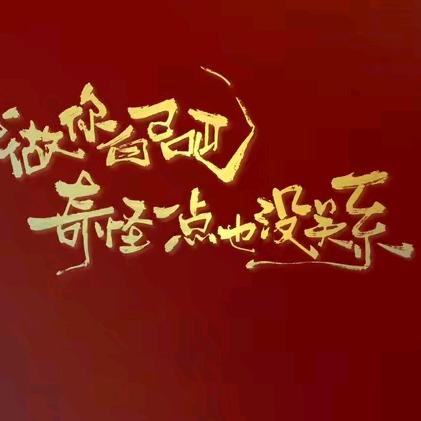 做你自己吧
奇怪一点也没关系